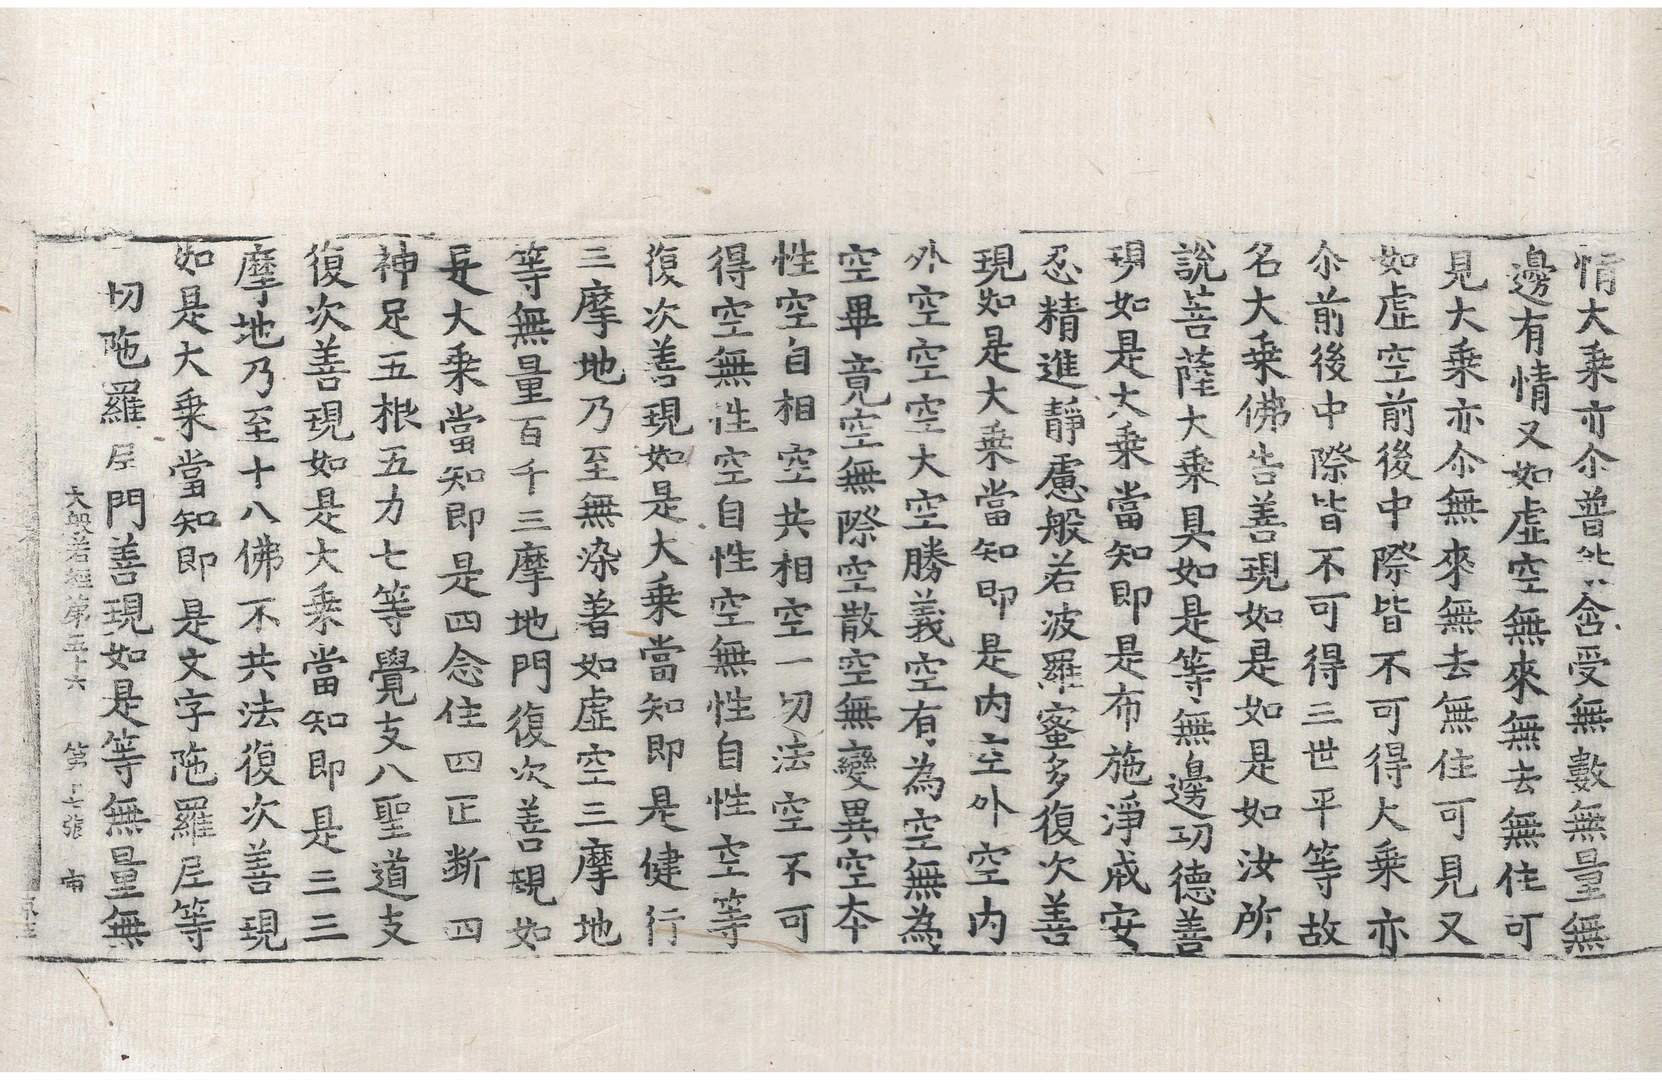 情大乗亦尒普能含受無數無量無
邊有情又如虛空無來無去無住可
見大乗亦尒無來無去無住可見又
如虛空前後中際皆不可得大乗亦
尒前後中際皆不可得三世平等故
名大乗佛告善現如是如是如汝所
說菩薩大乗具如是等無邊功德善
現如是大乗當知即是布施淨戒安
忍精進靜慮般若波羅蜜多復次善
現如是大乗當知即是内空外空内
外空空空大空勝義空有為空無為
空畢竟空無際空散空無變異空夲
性空自相空共相空一切法空不可
得空無性空自性空無性自性空等
復次善現如是大乗當知即是健行
三摩地乃至無染著如虛空三摩地
等無量百千三摩地門復次善現如
是大乗當知即是四念住四正斷四
神足五根五力七等覺支八聖道支
復次善現如是大乗當知即是三三
摩地乃至十八佛不共法復次善現
如是大乗當知即是文字陁羅尼等
切陁羅尼門善現如是等無量無
大般若經第五十六 第七張